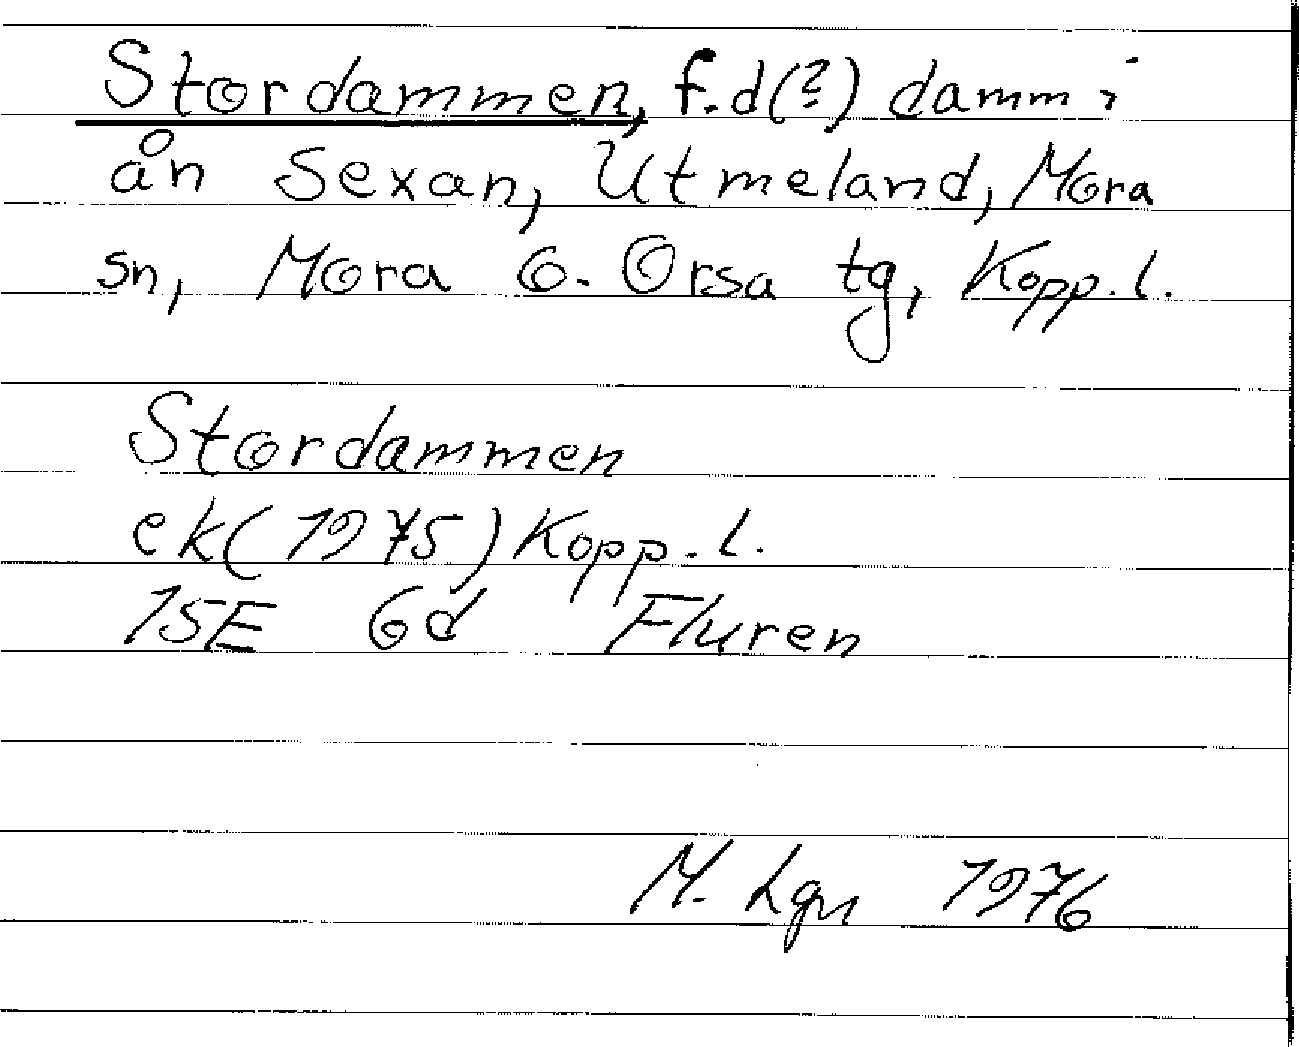 Stordammen, f.d(?) damm i
ån Sexan, Utmeland, Mora
sn, Mora o. Orsa tg, Kopp.l.
Stordammen
ek(1975)Kopp.l.
15E 6d Fluren
M. Lgn 1976